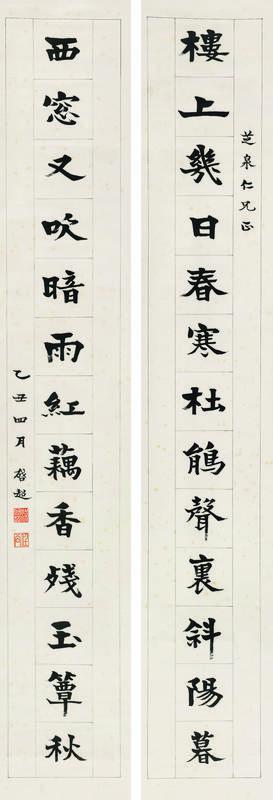 芝泉仁兄正
樓上幾日春寒杜鵑聲裏斜陽暮
西窓又吹暗雨紅藕香殘玉簟秋
乙丑四月啓超